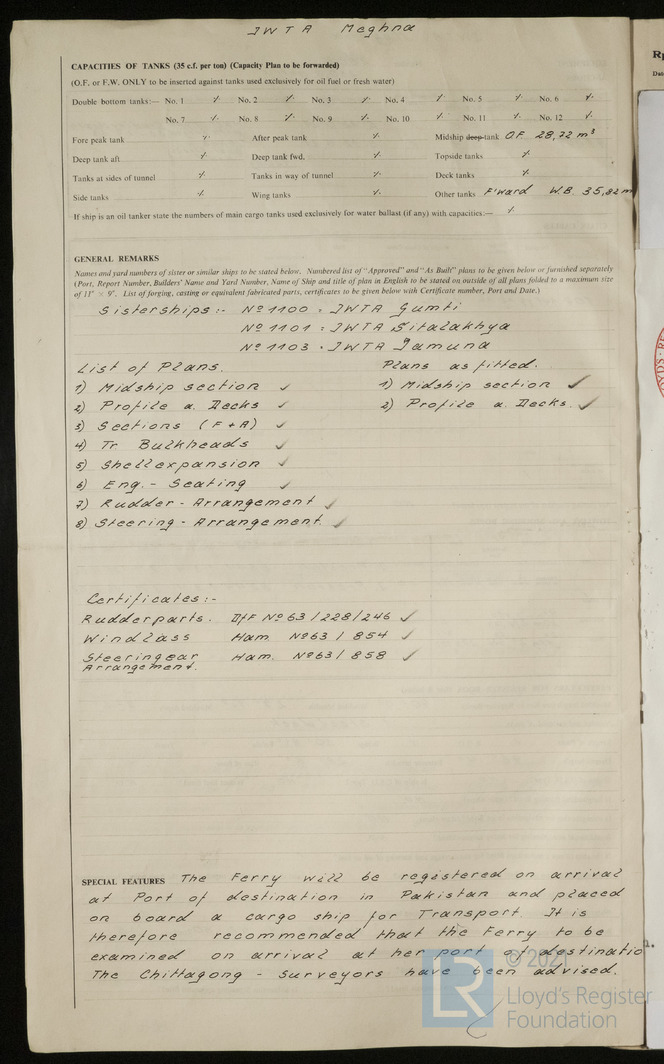 IWTA Meghna
CAPACITIES OF TANKS (35 c.f. per ton) (Capacity Plan to be forwarded)
(O.F. or F.W. ONLY to be inserted against tanks used exclusively for oil fuel or fresh water)
Double bottom tanks:— No. 1 ⁒ No. 2 ⁒ No. 3 ⁒ No. 4 ⁒ No. 5 ⁒ No. 6 ⁒
No. 7 ⁒ No. 8 ⁒ No. 9 ⁒ No. 10 ⁒ No. 11 ⁒ No. 12 ⁒
Fore peak tank ⁒ After peak tank ⁒ Midship deep tank O.F. 28,72 m³
Deep tank aft ⁒ Deep tank fwd. ⁒ Topside tanks ⁒
Tanks at sides of tunnel ⁒ Tanks in way of tunnel ⁒ Deck tanks ⁒
Side tanks ⁒ Wing tanks ⁒ Other tanks F'ward W.B. 35,82 m
If ship is an oil tanker state the numbers of main cargo tanks used exclusively for water ballast (if any) with capacities:— ⁒
GENERAL REMARKS
Names and yard numbers of sister or similar ships to be stated below. Numbered list of "Approved" and "As Built" plans to be given below or furnished separately
(Port, Report Number, Builders' Name and Yard Number, Name of Ship and title of plan in English to be stated on outside of all plans folded to a maximum size
of 11" × 9". List of forging, casting or equivalent fabricated parts, certificates to be given below with Certificate number, Port and Date.)
Sisterships:- Nº 1100 · IWTA Gumti
Nº 1101 · IWTA Sitalakhya
Nº 1103 · IWTA Jamuna
List of Plans. Plans as fitted.
1) Midship section ✓ 1) Midship section ✓
2) Profile a. Decks ✓ 2) Profile a. Decks. ✓
3) Sections (F+A) ✓
4) Tr. Bulkheads ✓
5) Shellexpansion ✓
6) Eng.- Seating ✓
7) Rudder - Arrangement ✓
8) Steering - Arrangement. ✓
Certificates:-
Rudderparts. Dff Nº 63/228/246 ✓
Windlass Ham. Nº 63/854 ✓
Steeringear Ham. Nº 63/858 ✓
Arrangement.
SPECIAL FEATURES The Ferry will be registered on arrival
at Port of destination in Pakistan and placed
on board a cargo ship for Transport. It is
therefore recommended that the Ferry to be
examined on arrival at her port of destinatio
The Chittagong - Surveyors have been advised.
© 2021
LR Lloyd's Register
Foundation